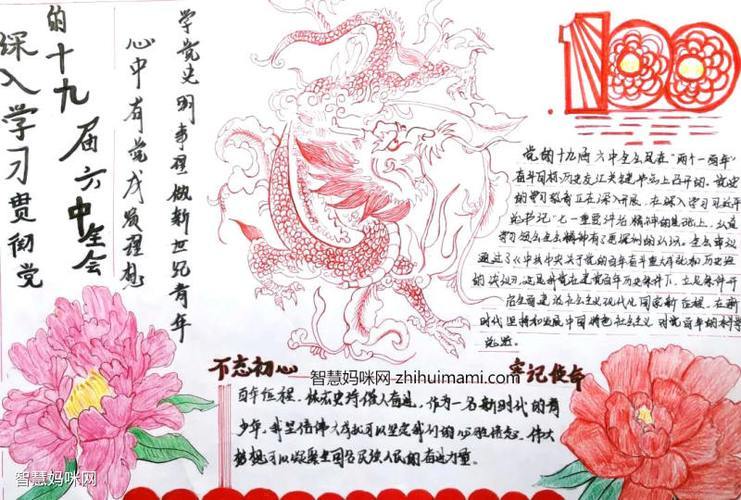 深入学习贯彻党
的十九届六中全会
心中有党成就理想
学党史明事理做新世纪青年
100
党的十九届六中全会是在"两个一百年"
奋斗目标历史交汇关键节点上召开的。党史
的学习教育正在深入开展，在深入学习习近平
总书记"七一"重要讲话精神的基础上，
学习 全会精神有了更深刻的认识。全会审议
通过了《中共中央关于党的百年奋斗重大成就和历史经
验的决议》，是在建党百年历史条件下，
启全面建设社会主义现代化国家新征程，在新
时代坚持和发展中国特色社会主义
不忘初心
牢记使命
智慧妈咪网-zhihuimami.com
百年征程，恢宏史诗催人奋进，作为一名新时代的青
少年，我坚信伟大 可以坚定我们的 信念，伟大
梦想可以凝聚全国各民族人民的奋进力量。
智慧妈咪网